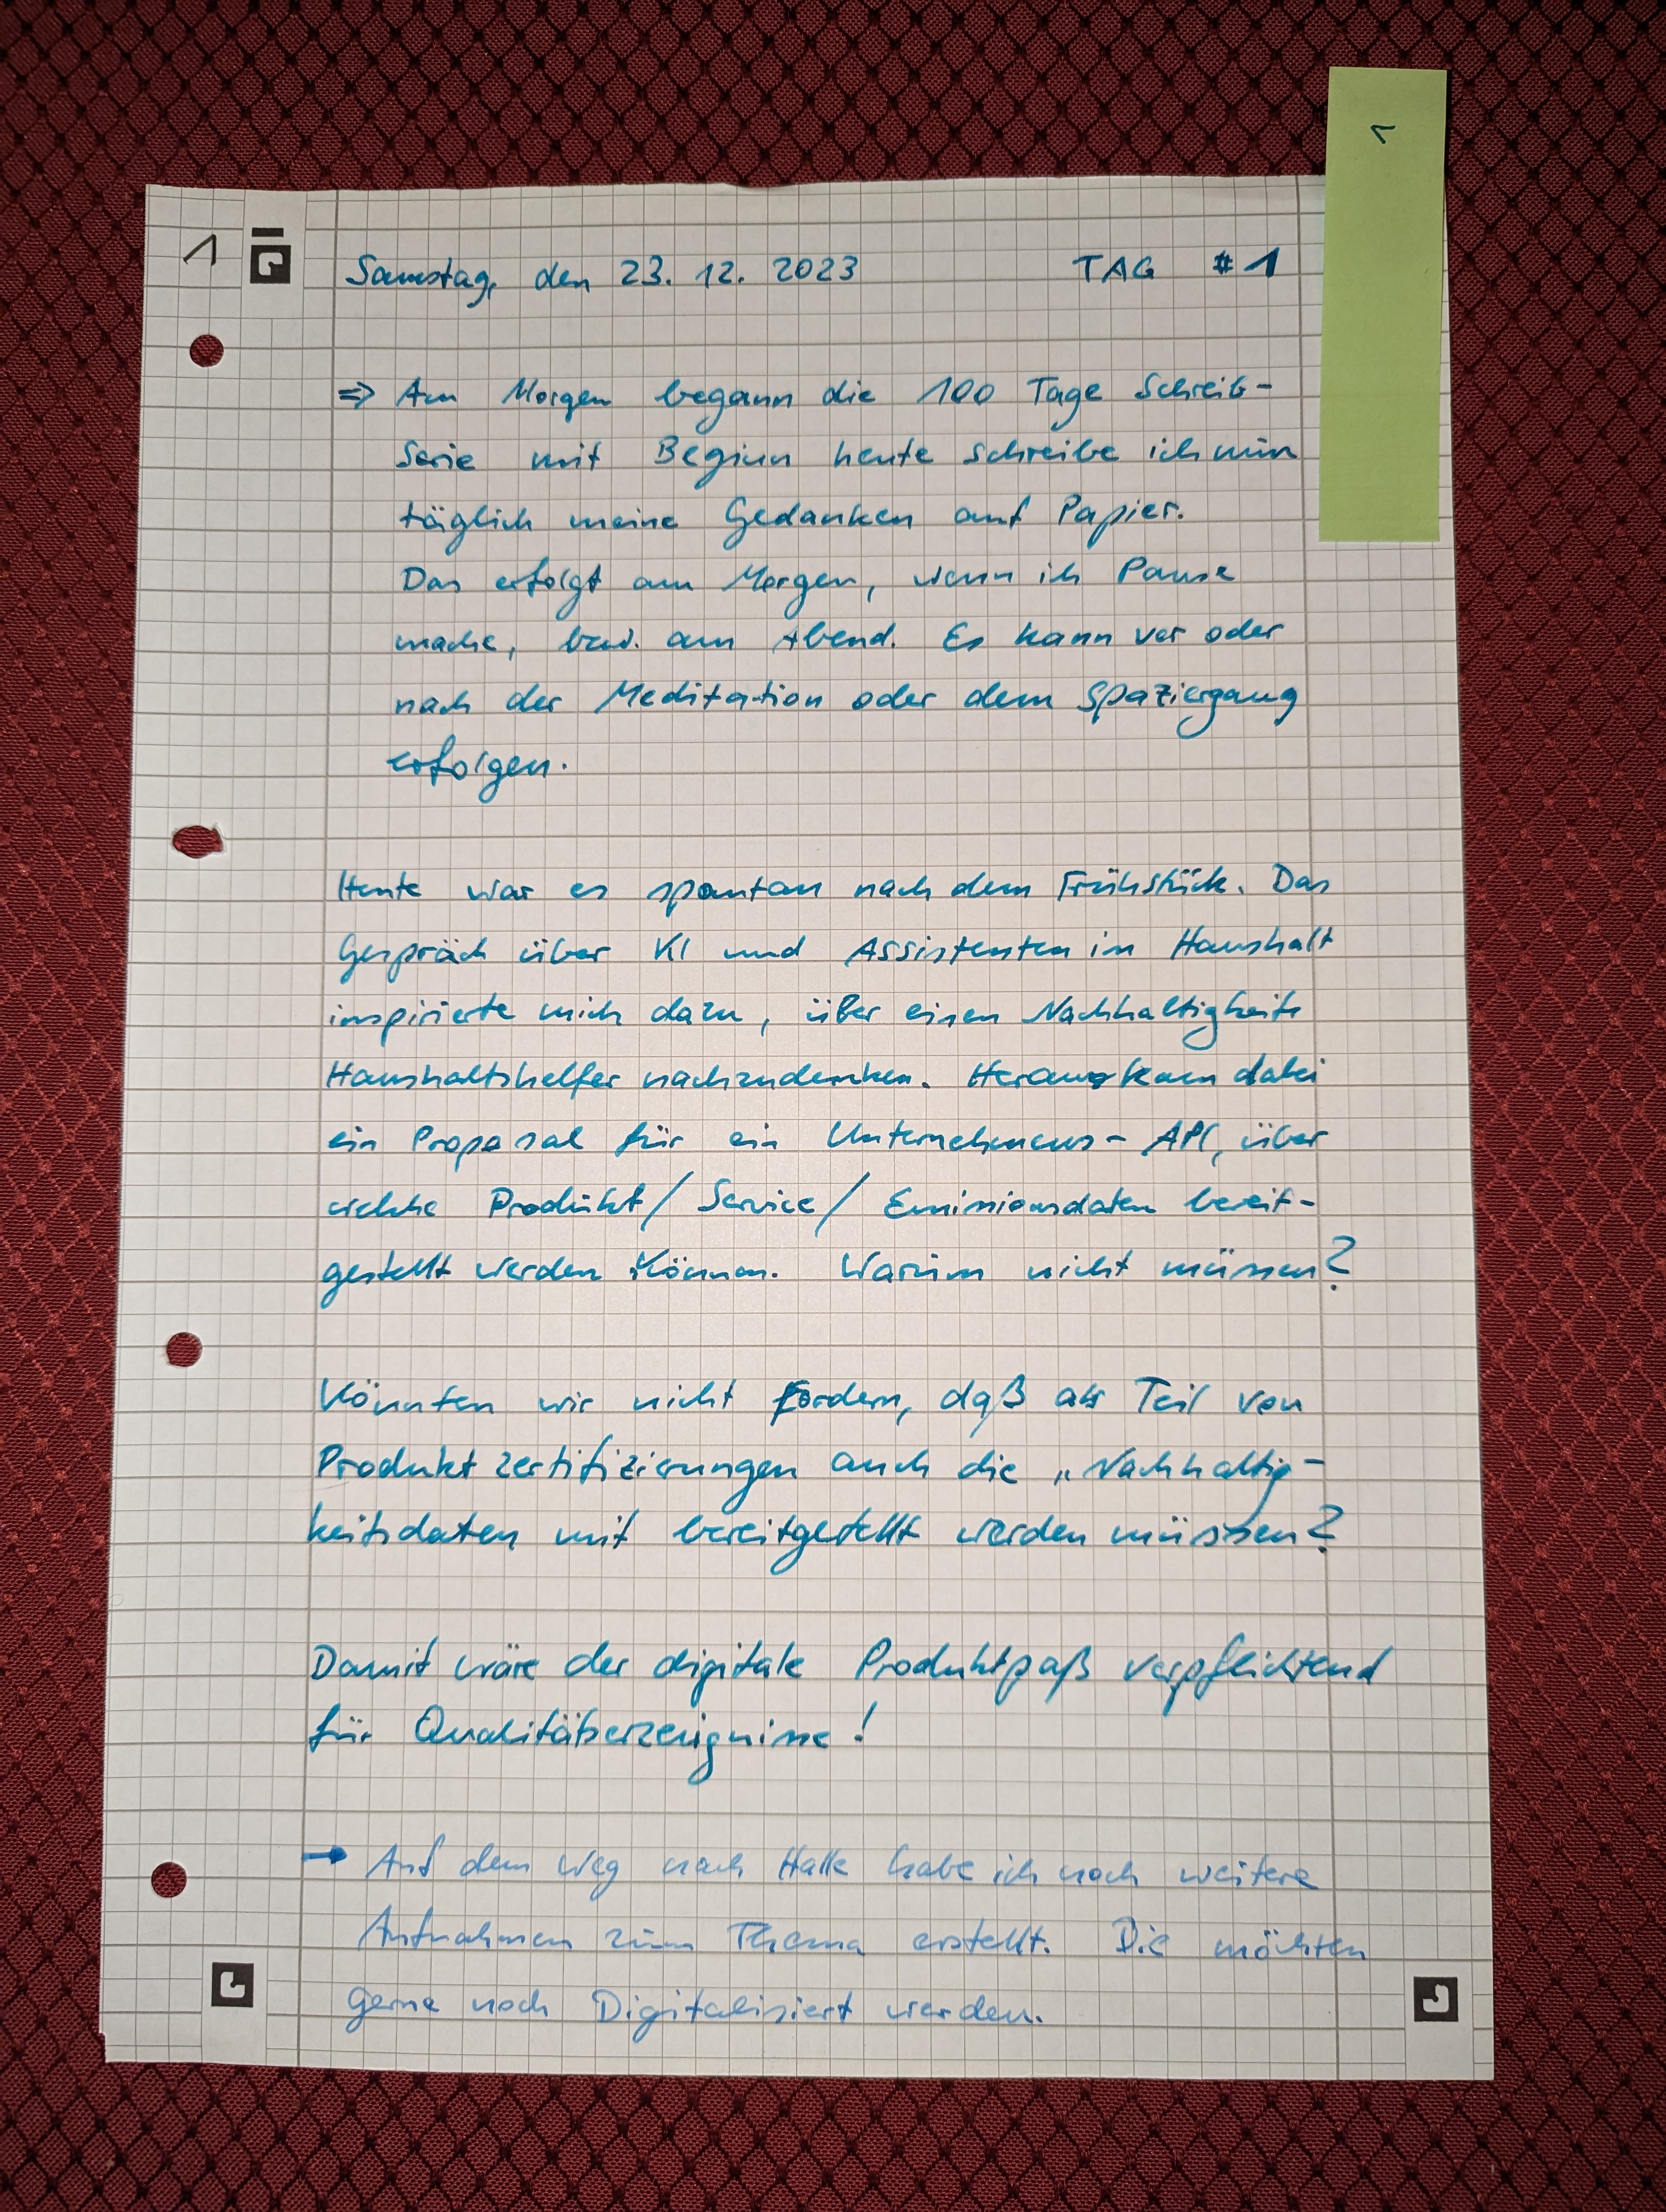 1
1
Samstag, den 23. 12. 2023 TAG #1
⇒ Am Morgen begann die 100 Tage Schreib-
Serie mit Beginn heute schreibe ich nun
täglich meine Gedanken auf Papier.
Das erfolgt am Morgen, wenn ich Pause
mache, bzw. am Abend. Es kann vor oder
nach der Meditation oder dem Spaziergang
erfolgen.
Heute war es spontan nach dem Frühstück. Das
Gespräch über KI und Assistenten im Haushalt
inspirierte mich dazu, über einen Nachhaltigkeits
Haushaltshelfer nachzudenken. Heraus kam dabei
ein Proposal für ein Unternehmens-API, über
welche Produkt/Service/Emissionsdaten bereit-
gestellt werden können. Warum nicht müssen?
Könnten wir nicht fordern, daß als Teil von
Produktzertifizierungen auch die „Nachhaltig-
keitsdaten mit bereitgestellt werden müssen?
Damit wäre der digitale Produktpaß verpflichtend
für Qualitätserzeugnisse!
→ Auf dem Weg nach Halle habe ich noch weitere
Aufnahmen zum Thema erstellt. Die möchten
gerne noch Digitalisiert werden.